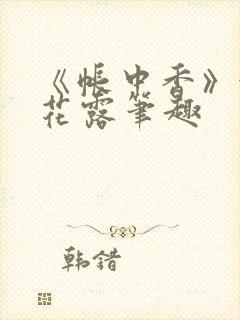 《帐中香》
花露笔趣
韩错